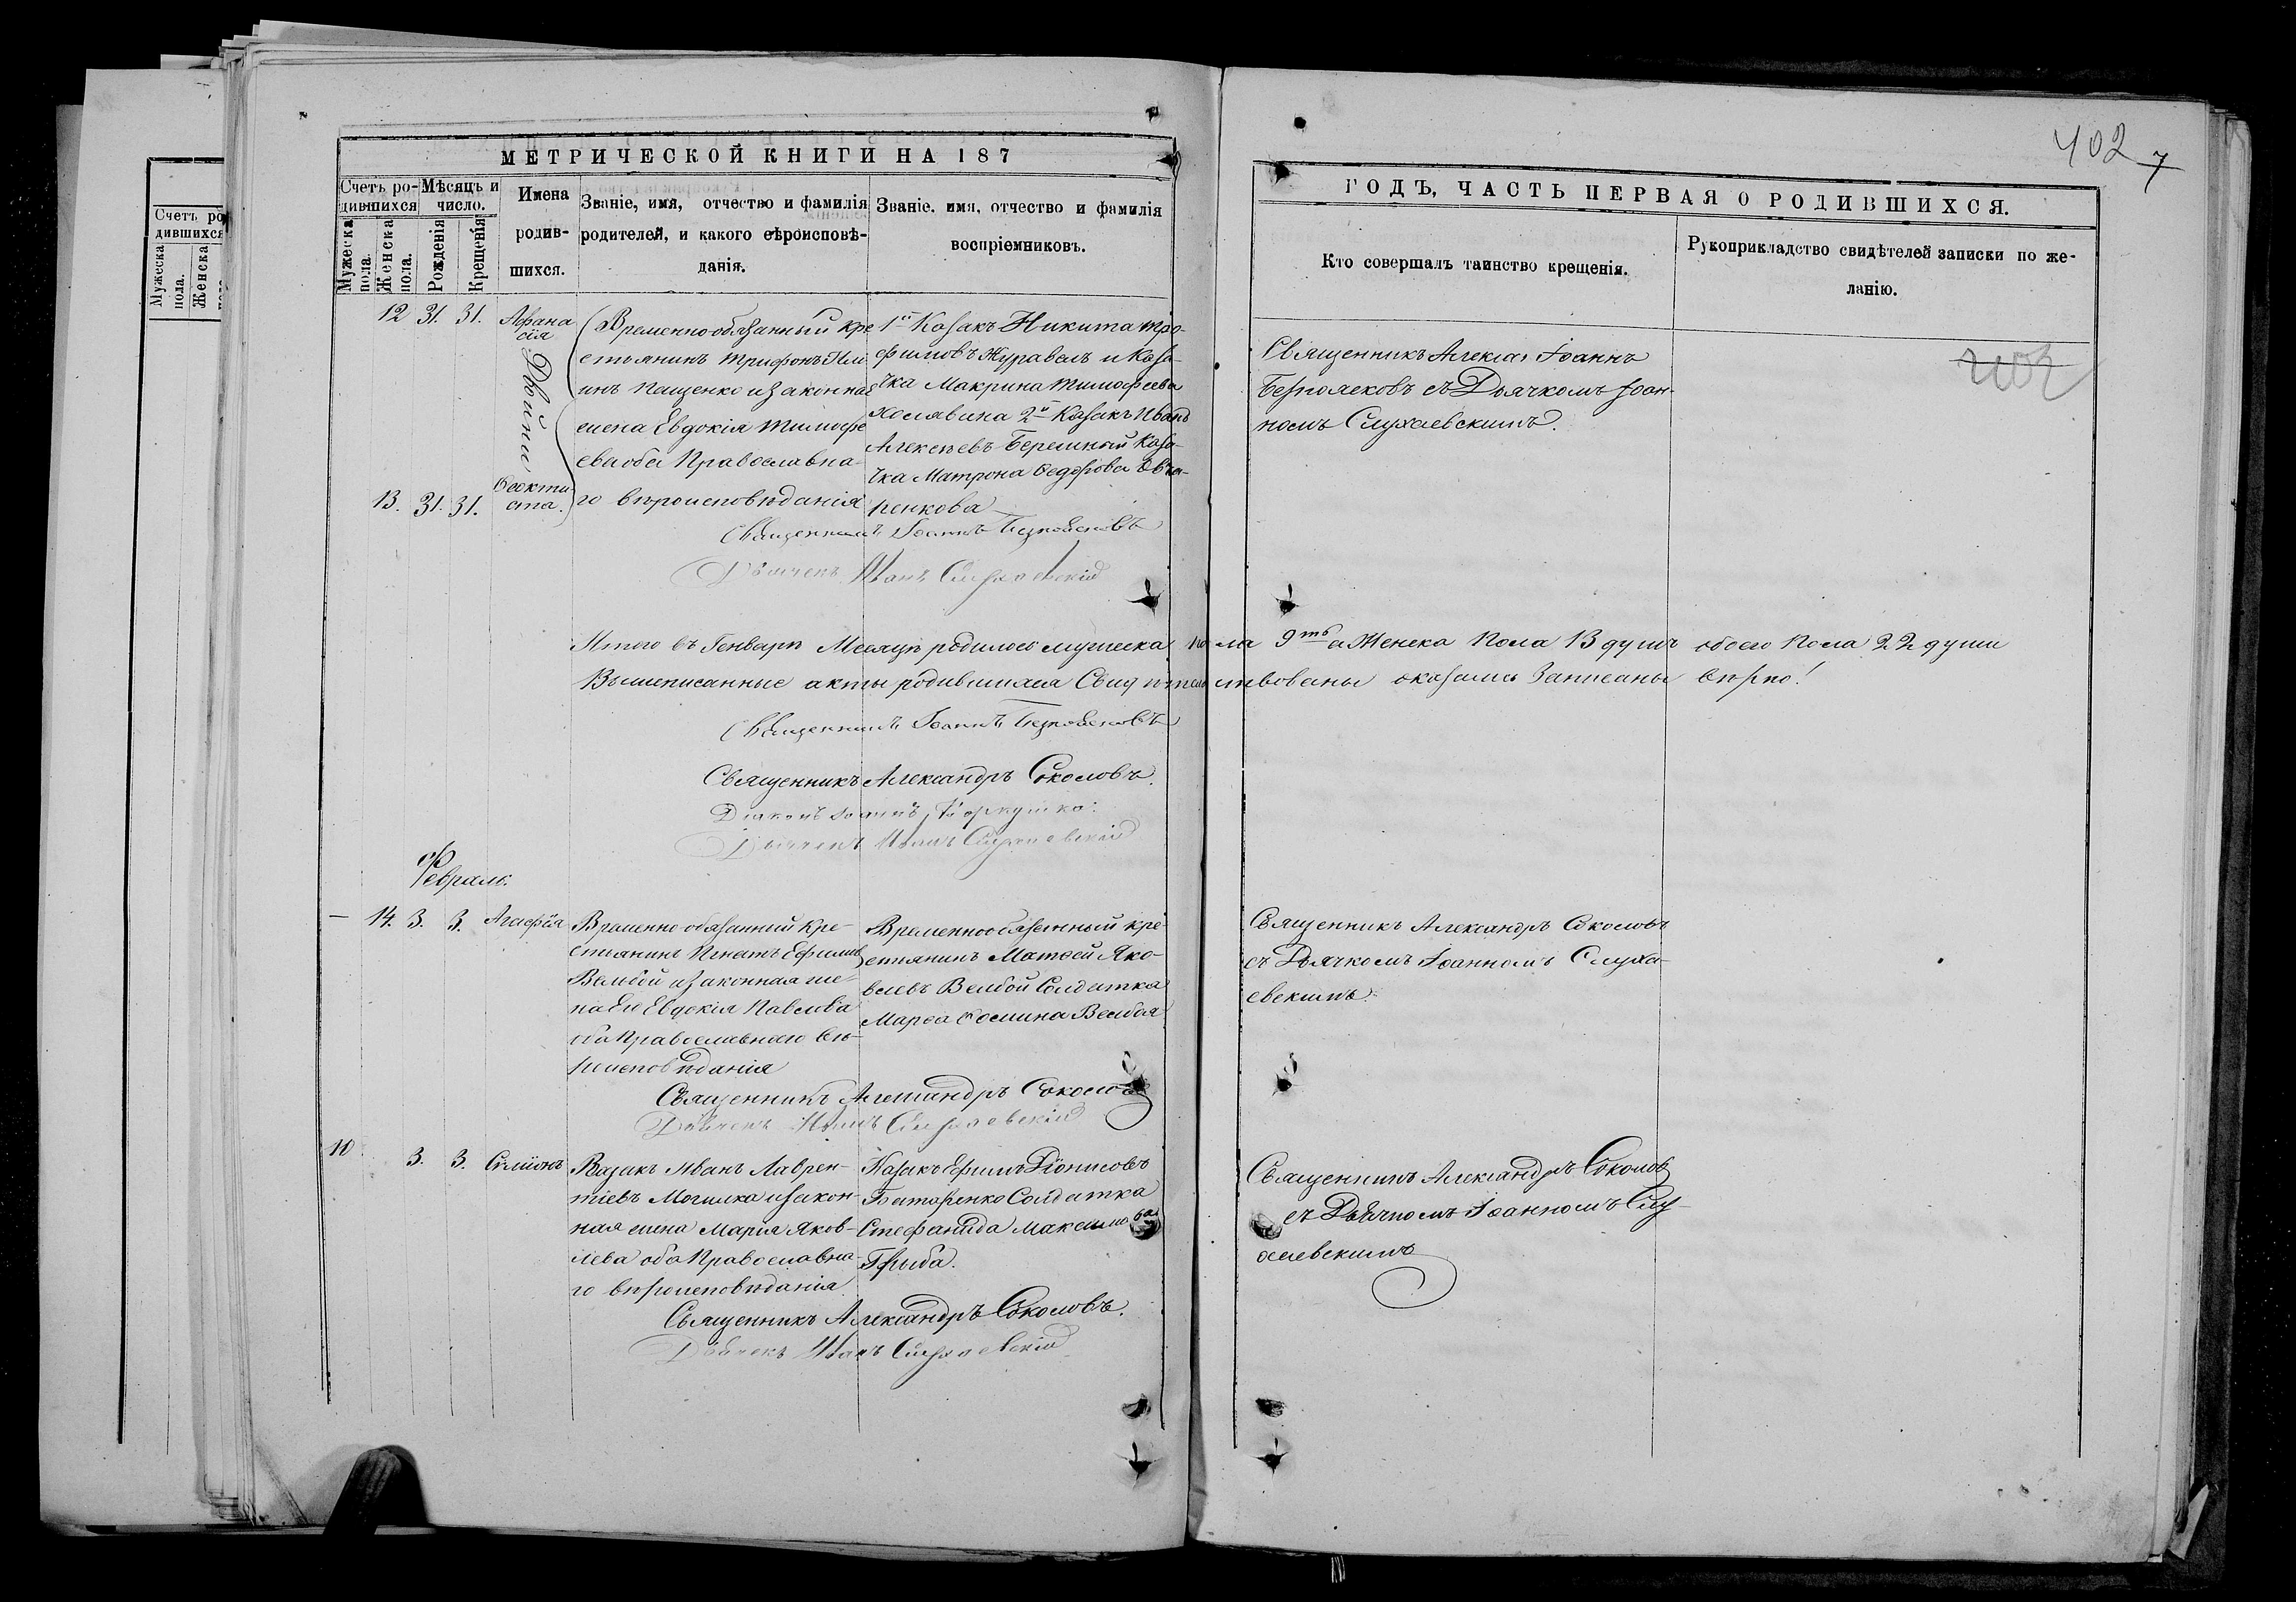 402
7
МЕТРИЧЕСКОЙ КНИГИ НА 187
ГОДЪ, ЧАСТЬ ПЕРВАЯ О РОДИВШИХСЯ.
Счетъ ро-
дившихся
Мужеска
пола.
Женска
Счетъ ро-
дившихся
Мужеска пола.
Женска пола.
Мѣсяцъ и
число.
Рожденія
Крещенія
Имена
родив-
шихся.
Званіе, имя, отчество и фамилія
родителей, и какого вѣроисповѣ-
данія.
Званіе, имя, отчество и фамилія
воспріемниковъ.
Кто совершалъ таинство крещенія.
Рукоприкладство свидѣтелей записки по же-
ланію.
12 31. 31.
Афана
сія
Двойни
13. 31. 31.
Ѳеокти-
ста.
Временно-обязанный кре
стьянинъ Трифонъ Или
инъ Пащенко и законная
жена Евдокія Тимофе
ева оба Православна-
го вѣроисповѣданія
1й Козакъ Никита Тро-
фимовъ Журавель и Каза-
чка Макрина Тимофеева
2й Козакъ Иванъ
Алексѣевъ Бережный Каза-
чка Матрона Федорова Овча-
ренкова
Священникъ Іоаннъ
Безпояс ковъ съ Дьячкомъ Іоан-
номъ Слухаевскимъ.
Священникъ Іоаннъ
Дьячекъ Иванъ Слухаевскій
Итого въ Генварѣ Месяцѣ родилось мужеска пола 9ть а Женска Пола 13 душъ обоего Пола 22 души
Вышеписанные акты родившихся Свидѣтельствованы оказались Записаны вѣрно!
Священникъ Іоаннъ
Священникъ Александръ Соколовъ.
Діаконъ Іоаннъ
Дьячекъ Иванъ Слухаевскій
Февраль.
14. 3. 3. Агафія
Временно-обязанный Кре-
стьянинъ Игнатъ Ефимовъ
Велибой и законная же-
на Его Евдокія Павлова
оба Православнаго вѣ-
роисповѣданія
Временнообязанный кре-
стьянинъ Матѳей Яко-
влевъ Велбой Солдатка
Марѳа Ѳомина Велбоя
Священникъ Александръ Соколовъ
съ Дьячкомъ Іоанномъ Слуха-
евскимъ.
Священникъ Александръ Соколовъ
Дьячекъ Иванъ Слухаевскій
10 3. 3. Симіонъ
Козакъ Иванъ Лаврен-
тіевъ Могилка и закон-
ная жена Марія Яков-
лева оба Православна-
го вѣроисповѣданія
Казакъ Ефимъ Діонисовъ
Батаренко Солдатка
Стефанида Максимова
Грыба.
Священникъ Александръ Соколовъ
съ Дьячкомъ Іоанномъ Слу-
хаевскимъ
Священникъ Александръ Соколовъ.
Дьячекъ Иванъ Слухаевскій